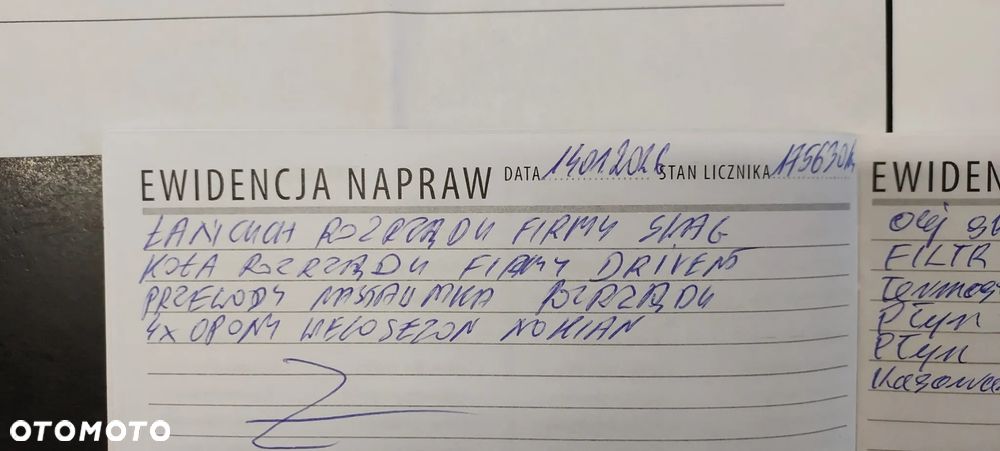 EWIDENCJA NAPRAW DATA 14.01.2026 STAN LICZNIKA 175630
ŁAŃCUCH ROZRZĄDU FIRMY SWAG
KOŁA ROZRZĄDU FIRMY DRIVENT
PRZEWODY NASTAWNIKA ROZRZĄDU
4X OPONY WIELOSEZON NOKIAN
EWIDEN
Olej
FILTR
Termos
Płyn
Płyn
OTOMOTO